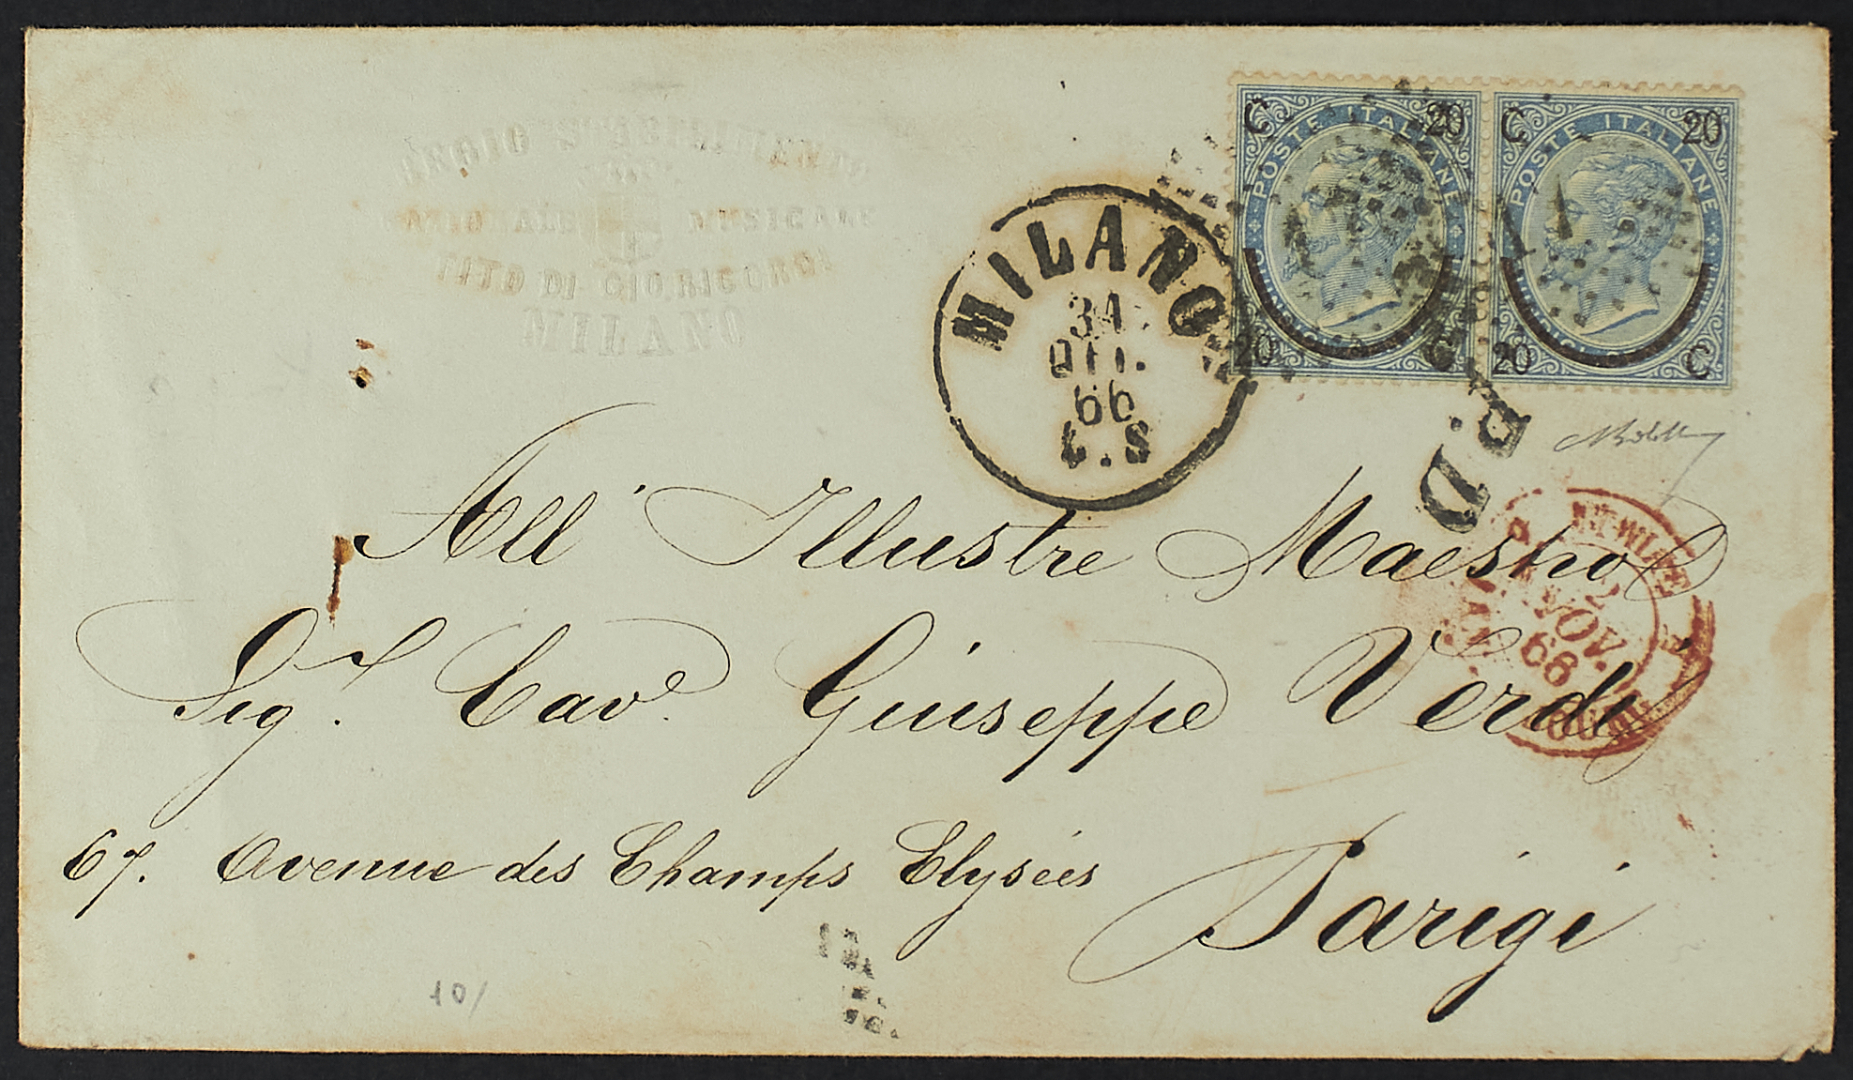 REGIO STABILIMENTO
NAZIONALE MUSICALE
TITO DI GIO. RICORDI
MILANO
C 20
POSTE ITALIANE
20 C
C 20
POSTE ITALIANE
20 C
MILANO
31
OTT.
66
4.S
P.D.
2
NOV.
66
All' Illustre Maestro
Sigr. Cave. Giuseppe Verdi
67. Avenue des Champs Elysées
Parigi
10/